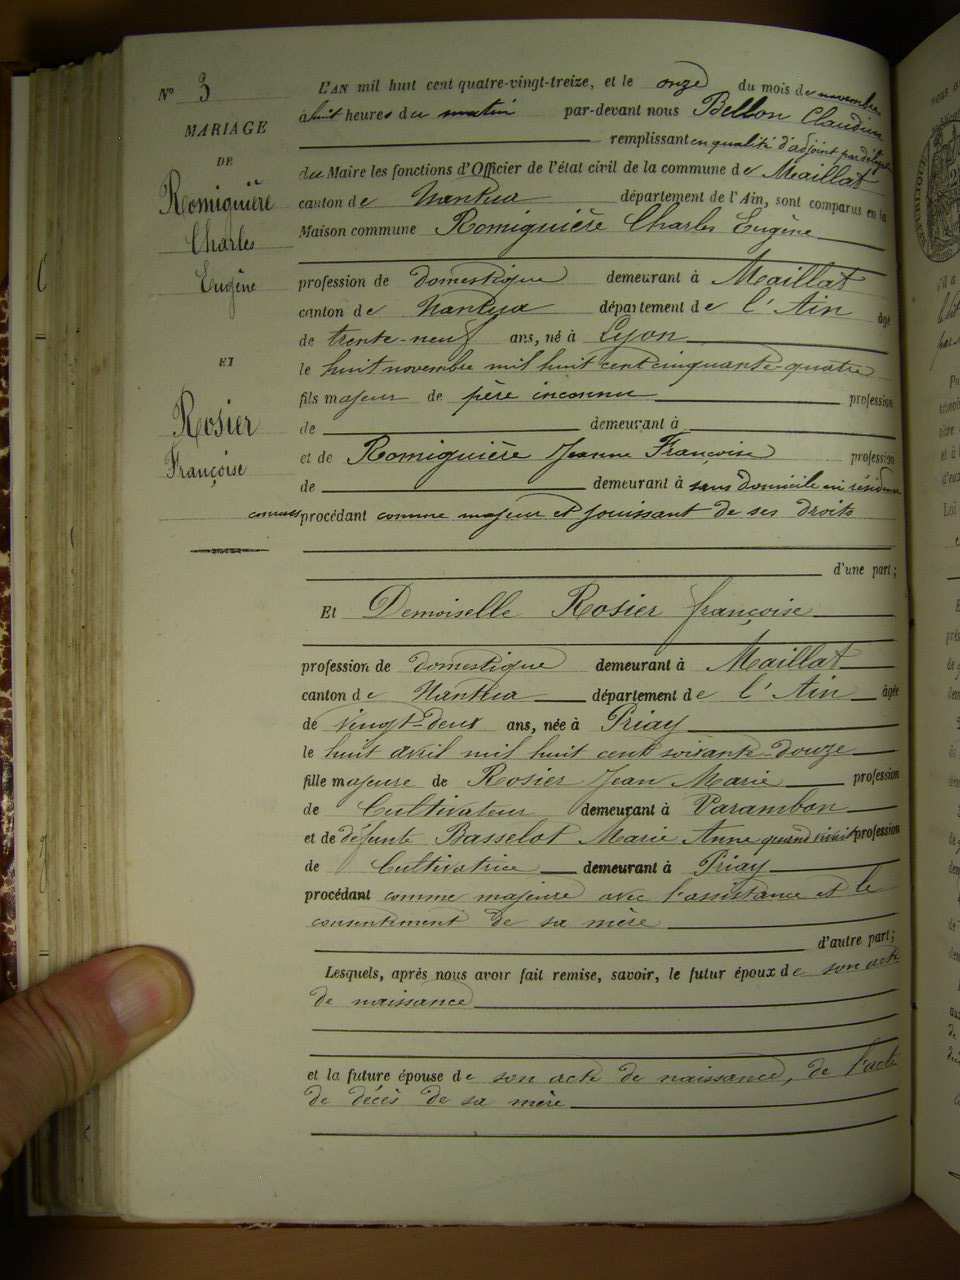 N° 3
MARIAGE
DE
Romiguière
Charles
Eugène
ET
Rosier
Françoise
L'AN mil huit cent quatre-vingt-treize, et le onze du mois de novembre
à huit heures du matin par-devant nous Bellon Claudius
remplissant en qualité d'adjoint par délégation
du Maire les fonctions d'Officier de l'état civil de la commune de Maillat
canton de Nantua département de l'Ain, sont comparus en la
Maison commune Romiguière Charles Eugène
profession de domestique demeurant à Maillat
canton de Nantua département de l'Ain âgé
de trente-neuf ans, né à Lyon
le huit novembre mil huit cent cinquante-quatre
fils majeur de père inconnu profession
de demeurant à
et de Romiguière Jeanne Françoise profession
de demeurant à sans domicile ni résidence
connus procédant comme majeur et jouissant de ses droits
d'une part;
Et Demoiselle Rosier françoise
profession de domestique demeurant à Maillat
canton de Nantua département de l'Ain âgée
de vingt-deux ans, née à Priay
le huit avril mil huit cent soixante-douze
fille majeure de Rosier Jean Marie profession
de Cultivateur demeurant à Varambon
et de défunte Basselot Marie Anne quand vivait profession
de Cultivatrice demeurant à Priay
procédant comme majeure avec l'assistance et le
consentement de sa mère
d'autre part;
Lesquels, après nous avoir fait remise, savoir, le futur époux de son acte
de naissance
et la future épouse de son acte de naissance, de l'acte
de décès de sa mère